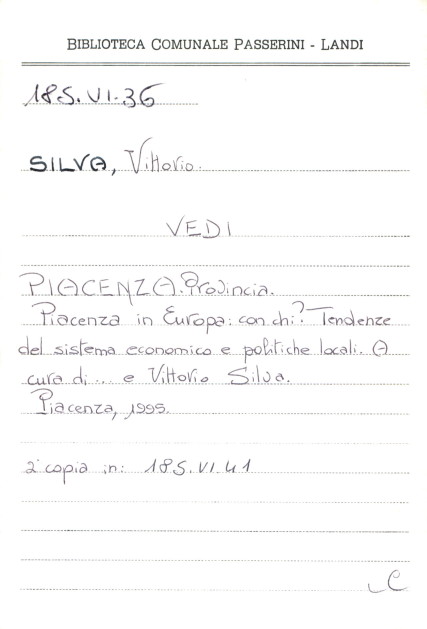 BIBLIOTECA COMUNALE PASSERINI - LANDI
18S.VI.36
SILVA, Vittorio.
VEDI
PIACENZA. Provincia.
Piacenza in Europa: con chi? Tendenze
del sistema economico e politiche locali. A
cura di... e Vittorio Silva.
Piacenza, 1995.
2ª copia in: 18S.VI.41
C